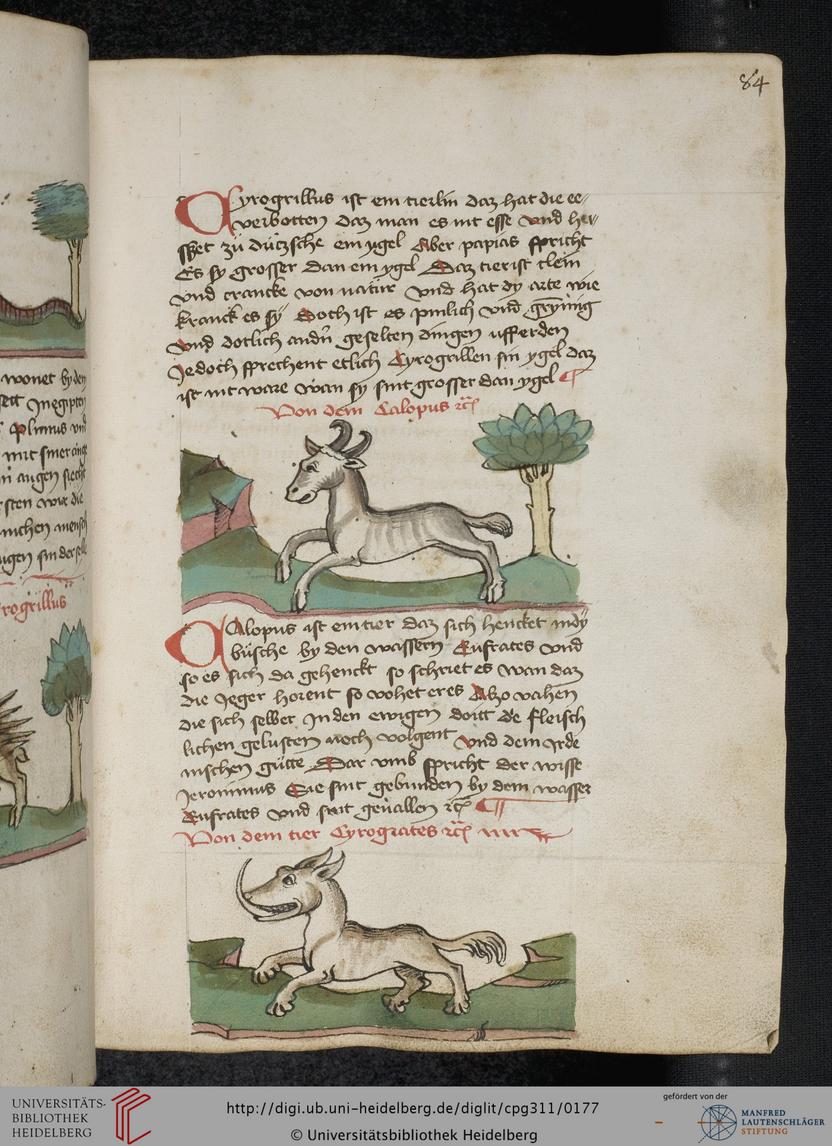 84
Cyrogrillus ist ein tierlin daz hat die ee
verbotten daz man es nit esse vnd hei
sset zü dützsche ein ygel Aber papias spricht
Es sy grosser dan ein ygel Daz tier ist clein
vnd crancke von natür vnd hat dy arte wie
kranck es sÿ Doch ist es pinlich vnd grÿmig
vnd dotlich andn geselten dingen vff erden
Jedoch sprechent etlich Cyrogrillen sin ygel daz
ist nit ware wan sy sint grosser dan ygel
Von dem Calopus rc
CAlopus ist ein tier daz sich hencket in dÿ
büsche by den wassern Eufrates vnd
so es sich da gehenckt so schriet es wan daz
die Jeger horent so vohet er es Also vahen
die sich selber In den ewigen doitt die fleisch
lichen gelusten noch volgent vnd dem Jrde
nischen gütte Dar vmb spricht der wisse
Jeronimus Sie sint gebunden by dem wasser
Eufrates vnd sint geuallen rc
Von dem tier Cyrogrates rc
wonet by den
seit In egipten
Plinius vnd
mit siner
in augen siecht
sten wie die
nichen mensch
ugen sin der selb
rogrillus
UNIVERSITÄTS-
BIBLIOTHEK
HEIDELBERG
http://digi.ub.uni-heidelberg.de/diglit/cpg311/0177
© Universitätsbibliothek Heidelberg
gefördert von der
MANFRED
LAUTENSCHLÄGER
STIFTUNG